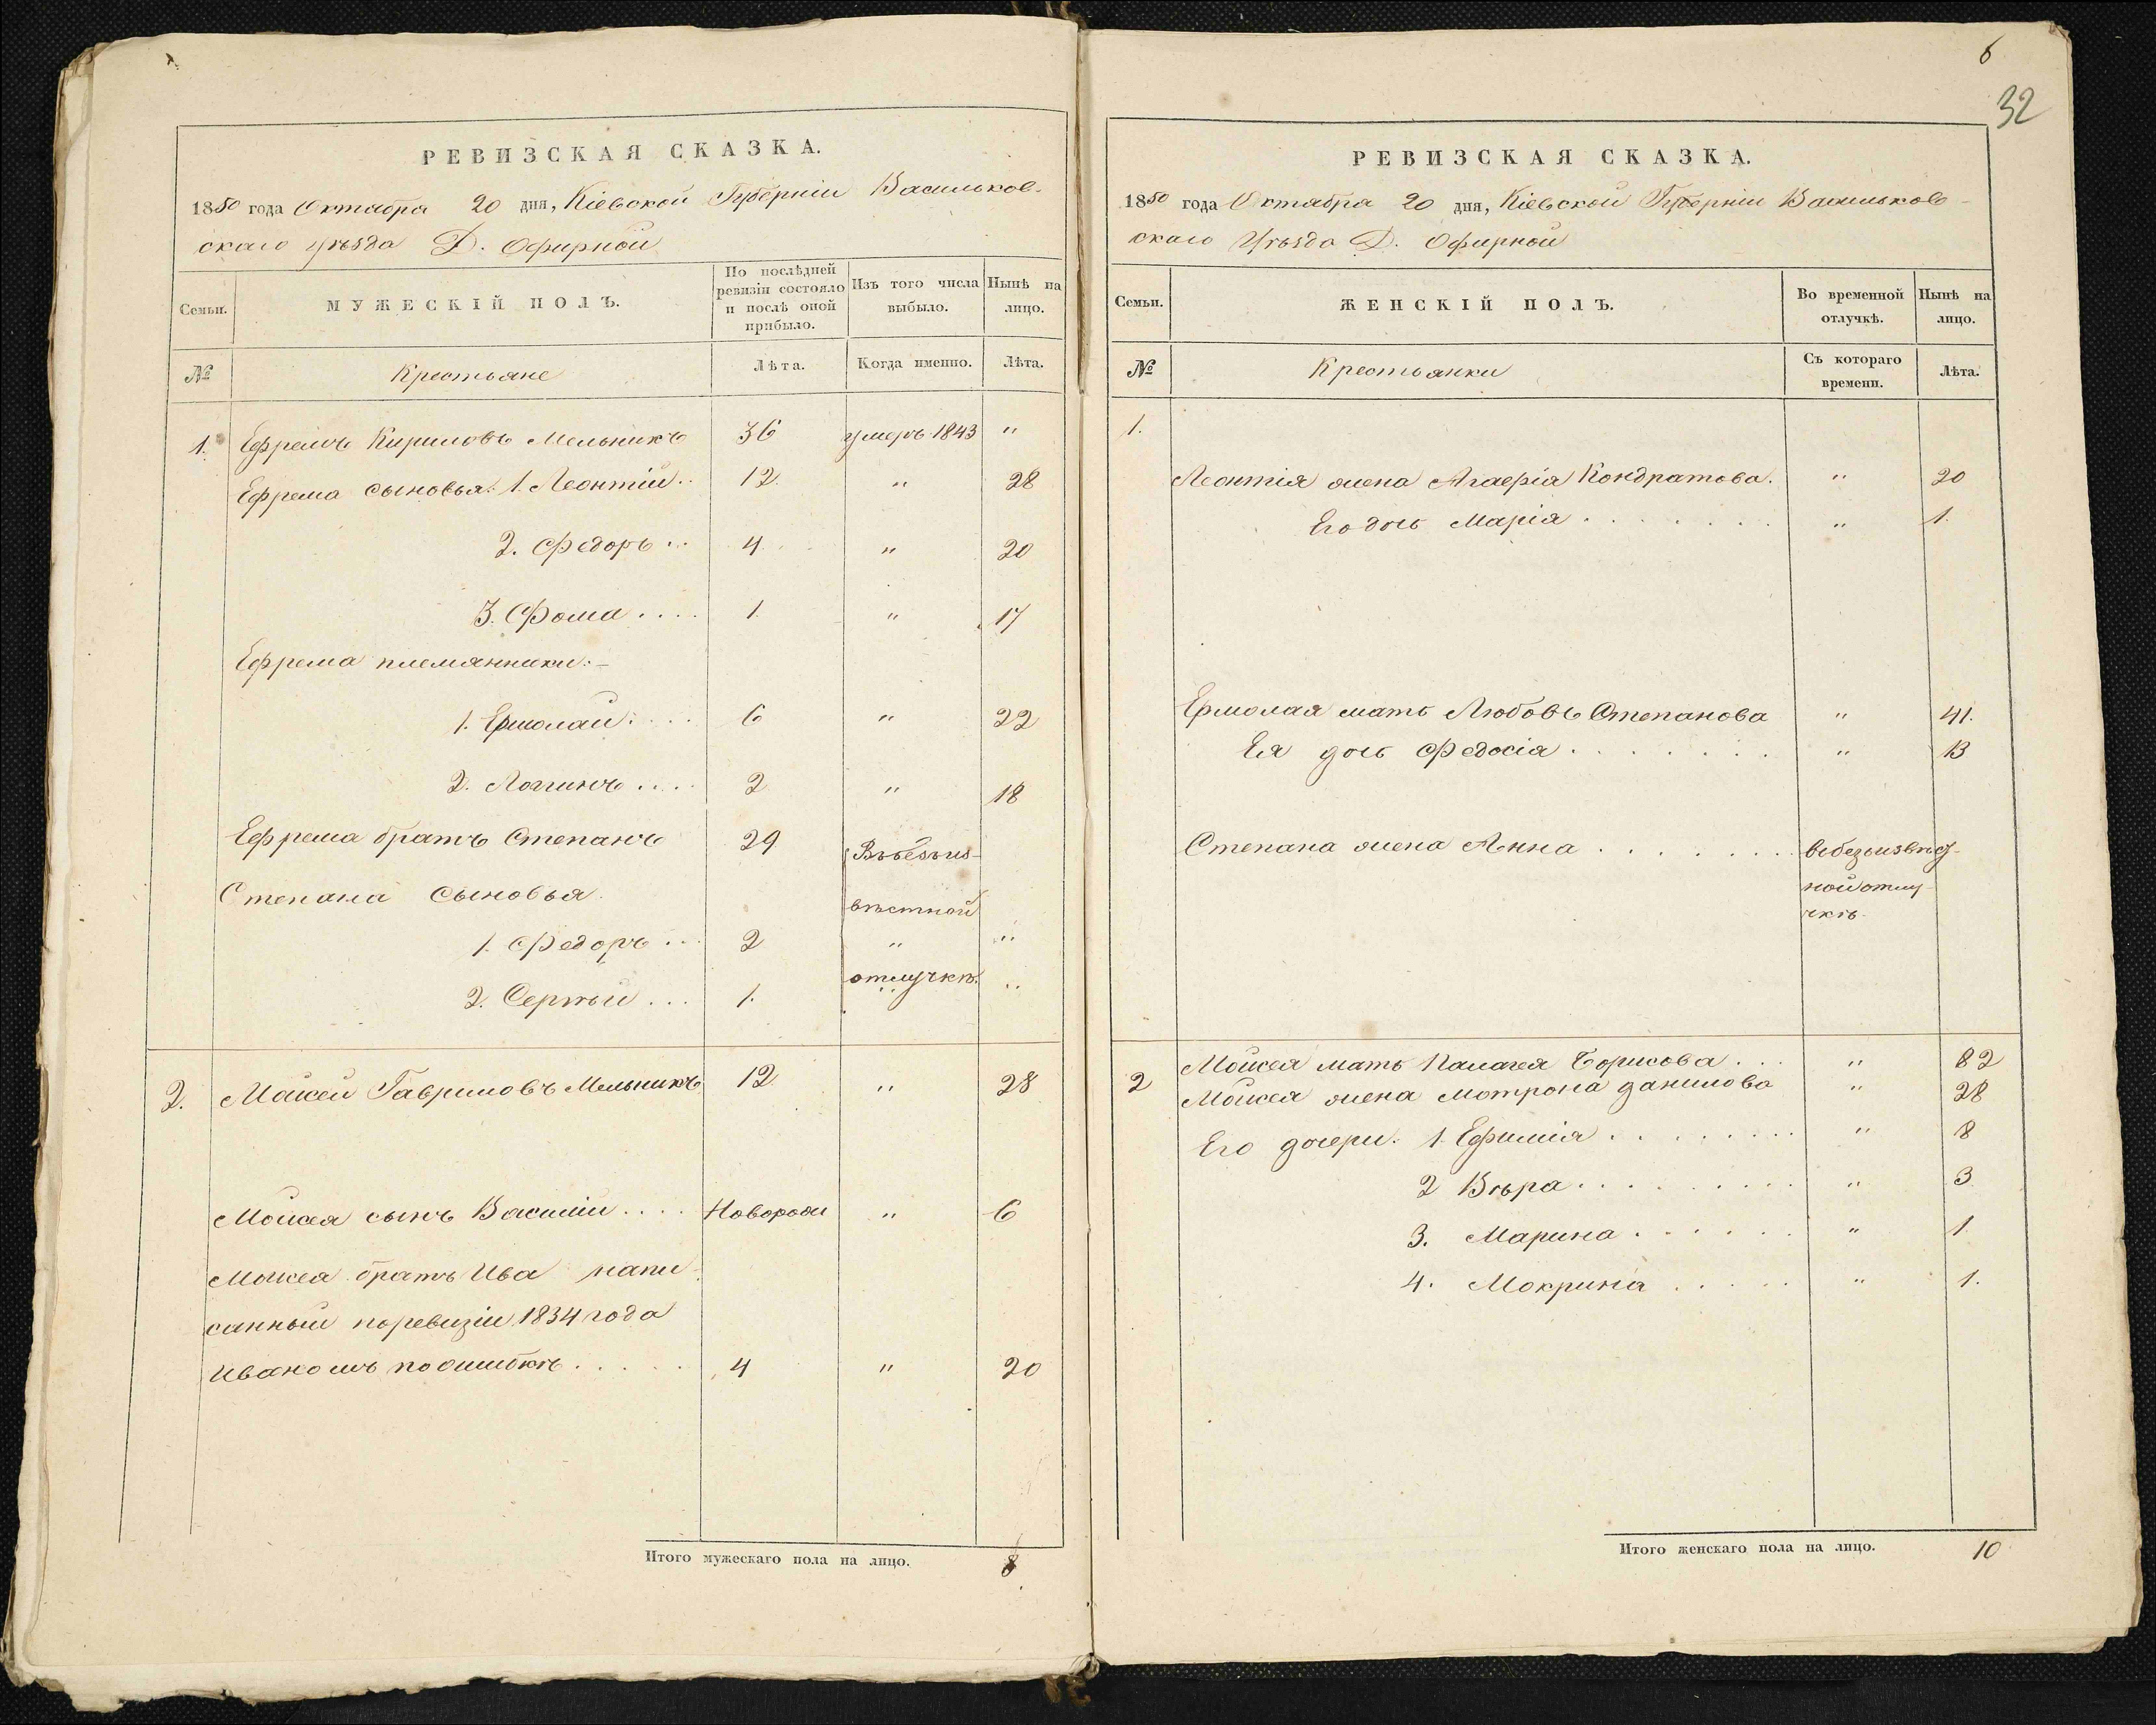 РЕВИЗСКАЯ СКАЗКА.
1850 года Октября 20 дня, Кіевской Губерніи Васильков-
скаго уѣзда Д. Офирной
Семьи.
МУЖЕСКІЙ ПОЛЪ.
По послѣдней ревизіи состояло и послѣ оной прибыло.
Изъ того числа выбыло.
Нынѣ на лицо.
№
Крестьяне
Лѣта.
Когда именно.
Лѣта.
1. Ефремъ Кириловъ Мельникъ 36 умеръ 1843 "
Ефрема сыновья: 1. Леонтій.. 12 " 28
2. Федоръ... 4 " 20
3. Фома.... 1. " 17
Ефрема племянники:-
1. Ермолай.... 6 " 22
2. Логинъ.... 2 " 18
Ефрема братъ Степанъ 29 Въбезъиз-
Степана сыновья. вѣстной
1. Федоръ... 2 " "
отлучкѣ.
2. Сергѣй... 1. " "
2. Мойсей Гавриловъ Мельникъ 12 " 28
Мойсея сынъ Василій.... Новорож " 6
Мойсея братъ Ива напи-
санный поревизіи 1834 года
Иваномъ поошибкѣ..... 4 " 20
Итого мужескаго пола на лицо. 8
6
32
РЕВИЗСКАЯ СКАЗКА.
1850 года Октября 20 дня, Кіевской Губерніи Васильков-
скаго Уѣзда Д. Офирной
Семьи.
ЖЕНСКІЙ ПОЛЪ.
Во временной отлучкѣ.
Нынѣ на лицо.
№
Крестьянки
Съ котораго времени.
Лѣта.
1.
Леонтія жена Агаѳрія Кондратова. " 20
Его дочь Марія....... " 1.
Ермолая мать Любовь Степанова " 41.
Ея дочь Федосія....... " 13
Степана жена Анна....... вбезъизвѣд-
ной отлу-
чкѣ.
2 Мойсея мать Палагея Борисова... " 82
Мойсея жена Мотрона Данилова " 28
Его дочери: 1. Ефимія........ " 8
2 Вѣра......... " 3
3. Марина...... " 1
4. Мокрина..... " 1.
Итого женскаго пола на лицо. 10